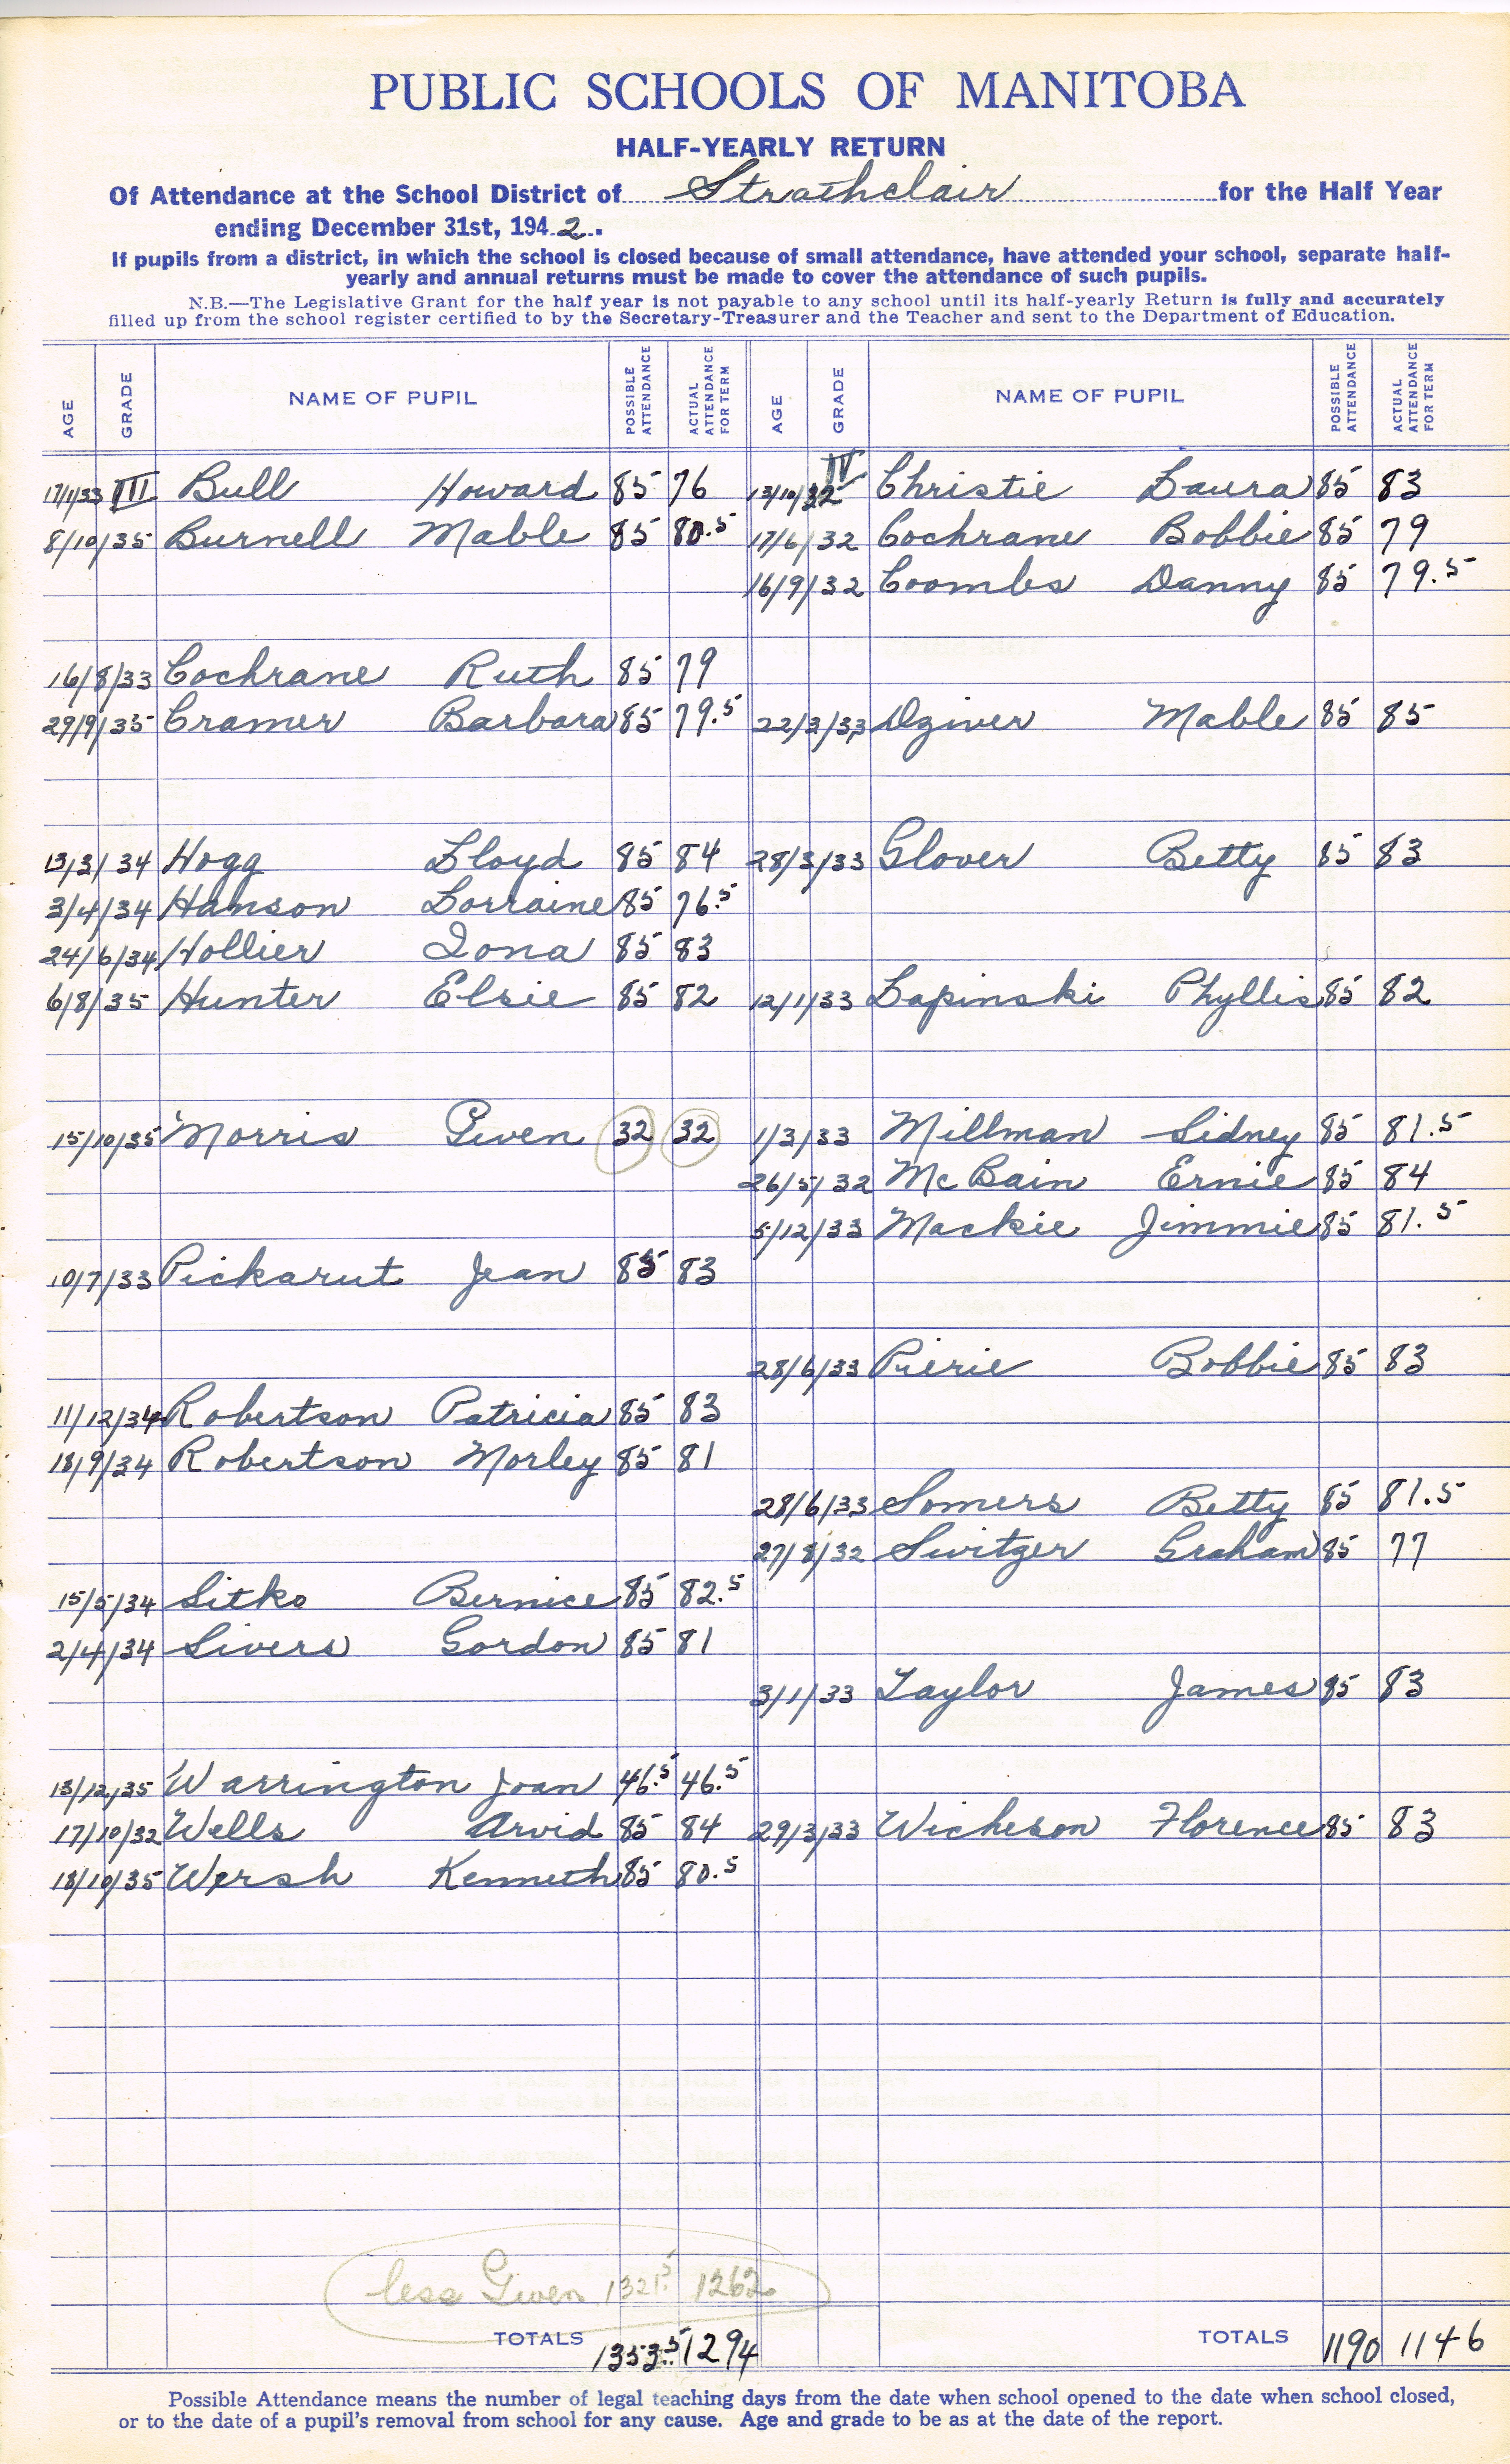 PUBLIC SCHOOLS OF MANITOBA
HALF-YEARLY RETURN
Of Attendance at the School District of Strathclair for the Half Year
ending December 31st, 1942.
If pupils from a district, in which the school is closed because of small attendance, have attended your school, separate half-
yearly and annual returns must be made to cover the attendance of such pupils.
N.B.—The Legislative Grant for the half year is not payable to any school until its half-yearly Return is fully and accurately
filled up from the school register certified to by the Secretary-Treasurer and the Teacher and sent to the Department of Education.
AGE GRADE NAME OF PUPIL POSSIBLE ATTENDANCE ACTUAL ATTENDANCE FOR TERM AGE GRADE NAME OF PUPIL POSSIBLE ATTENDANCE ACTUAL ATTENDANCE FOR TERM
17/1/33 III Bull Howard 85 76 13/10/32 IV Christie Laura 85 83
8/10/35 Burnell Mable 85 80.5 17/6/32 Cochrane Bobbie 85 79
16/9/32 Coombs Danny 85 79.5
16/8/33 Cochrane Ruth 85 79
29/9/35 Cramer Barbara 85 79.5 22/3/33 Dziver Mable 85 85
13/3/34 Hogg Lloyd 85 84 28/3/33 Glover Betty 85 83
3/4/34 Hanson Lorraine 85 76.5
24/6/34 Hollier Iona 85 83
6/8/35 Hunter Elsie 85 82 12/1/33 Lapinski Phyllis 85 82
15/10/35 Morris Gwen 32 32 1/3/33 Millman Sidney 85 81.5
26/5/32 McBain Ernie 85 84
5/12/33 Mackie Jimmie 85 81.5
10/7/33 Pickarut Jean 85 83
28/6/33 Pierie Bobbie 85 83
11/12/34 Robertson Patricia 85 83
18/9/34 Robertson Morley 85 81
28/6/33 Somers Betty 85 81.5
27/8/32 Switzer Graham 85 77
15/5/34 Sitko Bernice 85 82.5
2/4/34 Sivers Gordon 85 81
3/1/33 Taylor James 85 83
13/12/35 Warrington Joan 46.5 46.5
17/10/32 Wells Arvid 85 84 29/3/33 Wicheson Florence 85 83
18/10/35 Wersh Kenneth 85 80.5
less Gwen 1321.5 1262
TOTALS 1353.5 1294 TOTALS 1190 1146
Possible Attendance means the number of legal teaching days from the date when school opened to the date when school closed,
or to the date of a pupil's removal from school for any cause. Age and grade to be as at the date of the report.